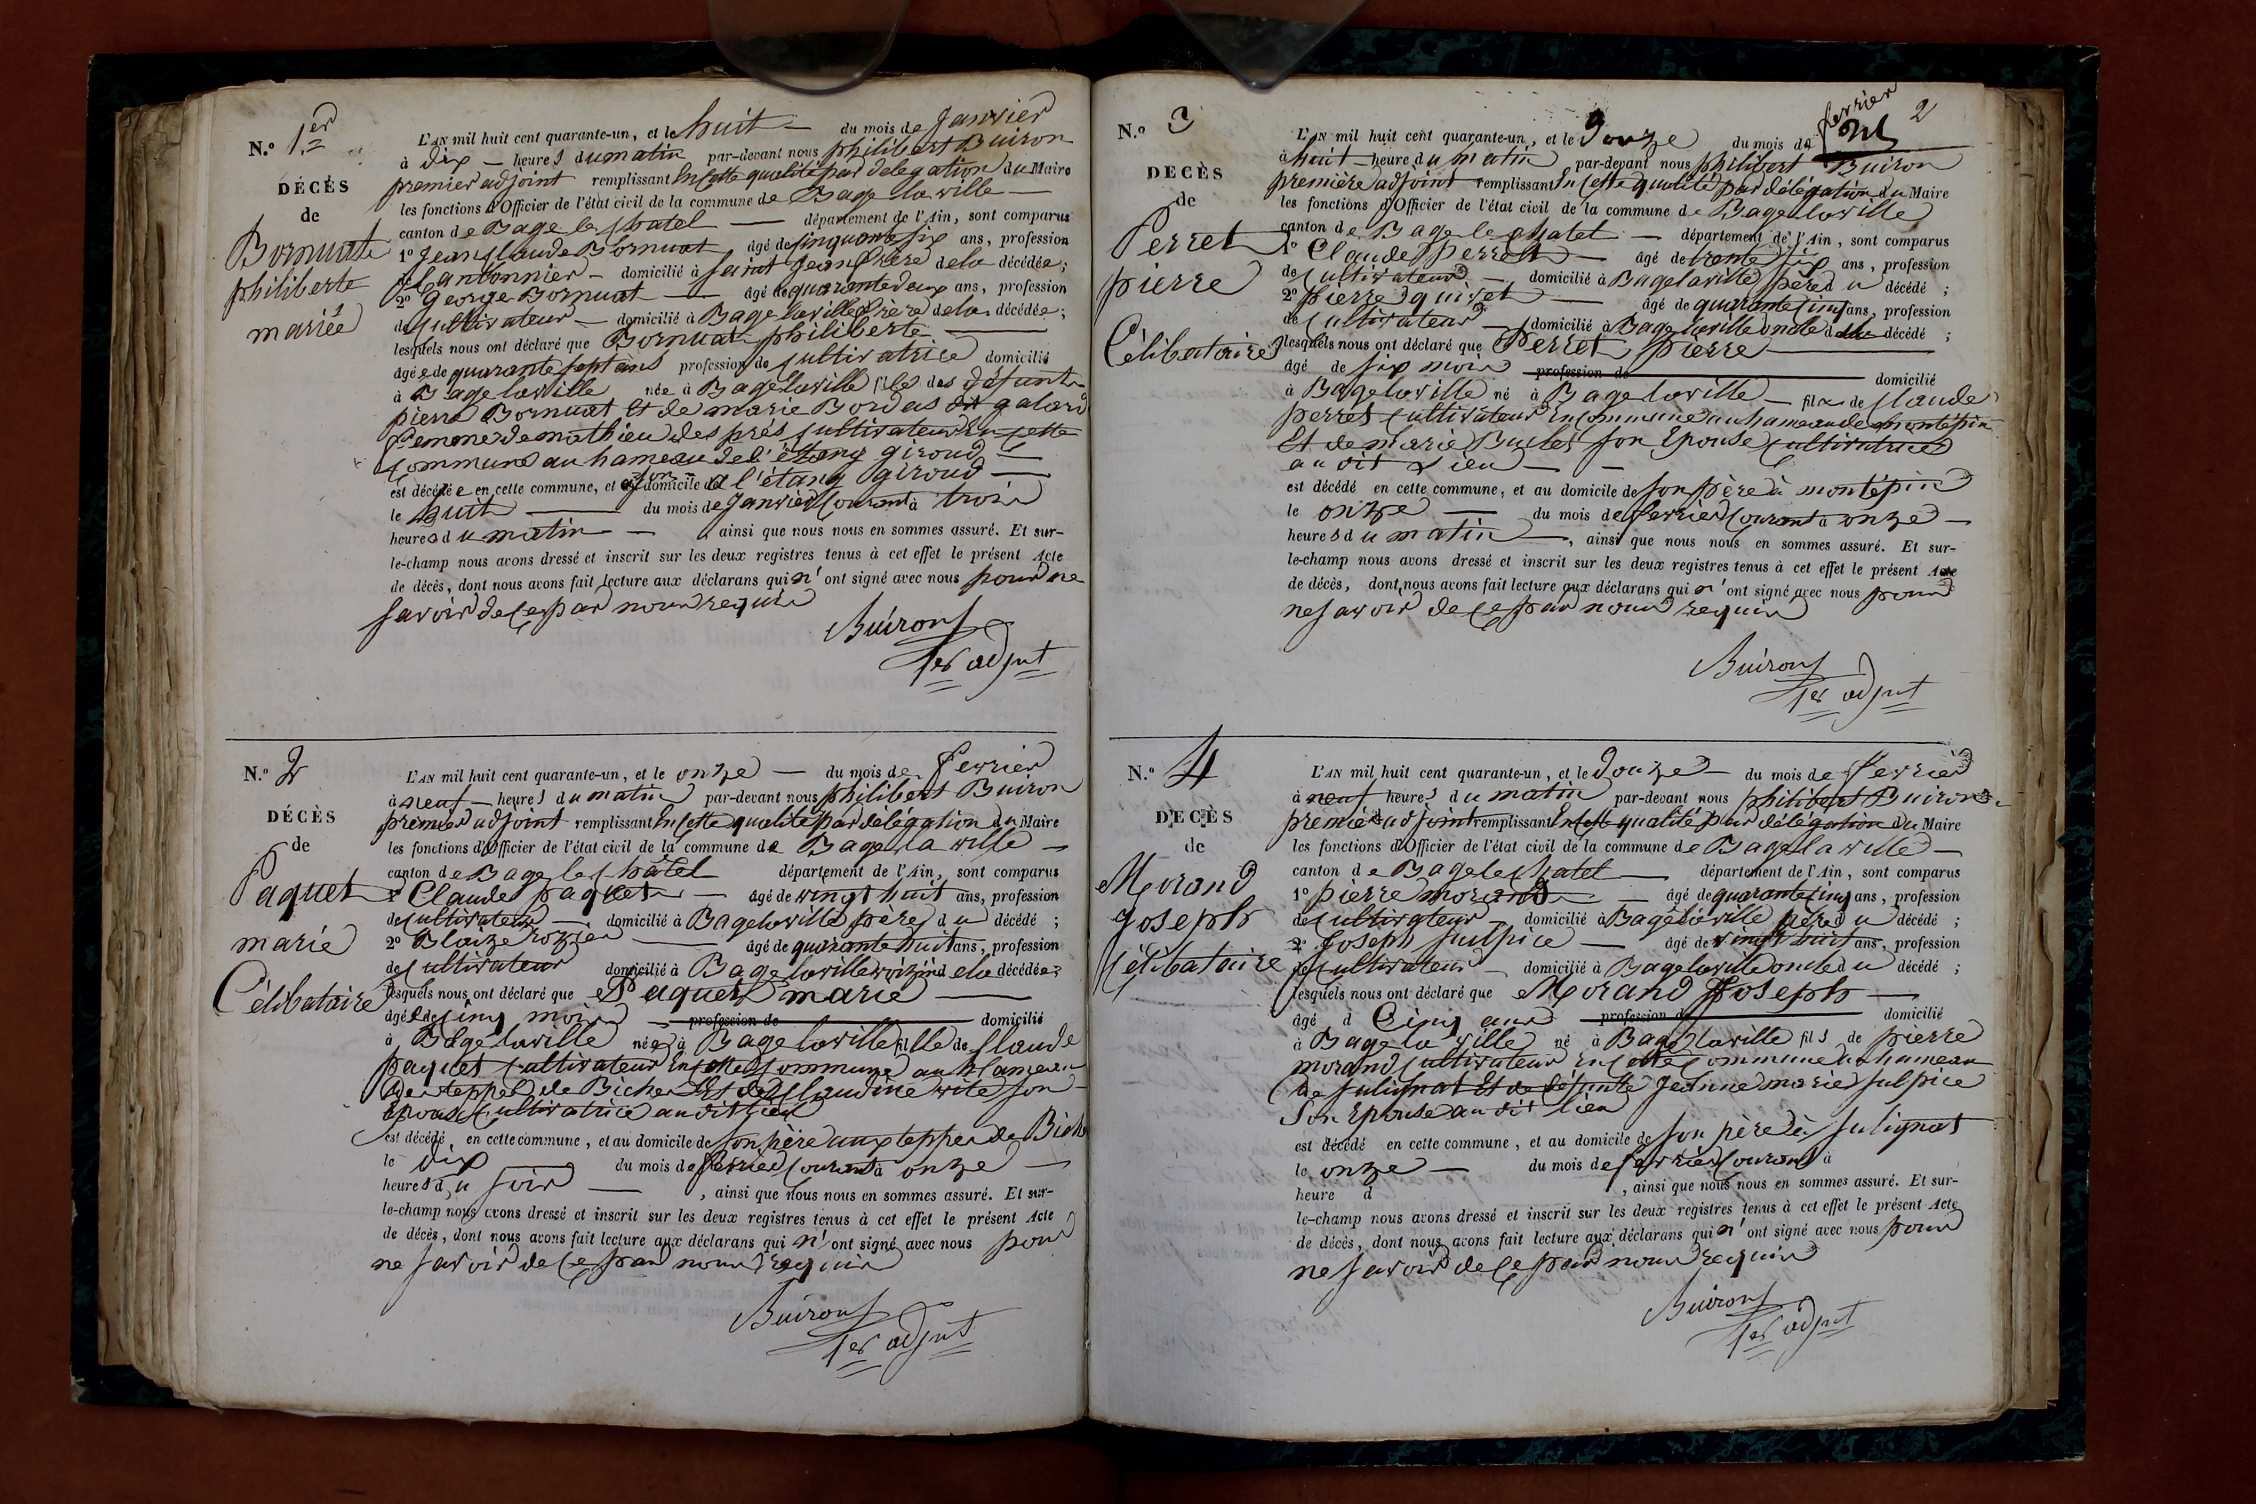 N.º 1er
DÉCÈS
de
Bornuat
philiberte
mariée
L'AN mil huit cent quarante-un, et le huit — du mois de Janvier
à dix — heures du matin par-devant nous philibert Buiron
premier adjoint remplissant en cette qualité par delegation du Maire
les fonctions d'Officier de l'état civil de la commune de Bage la ville —
canton de Bage le chatel — département de l'Ain, sont comparus
1º Jean Claude Bornuat âgé de cinquante six ans, profession
de Cantonnier — domicilié à saint Jean frère de la décédée ;
2º George Bornuat — âgé de quarante deux ans, profession
de cultivateur — domicilié à Bage laville frère de la décédée ;
lesquels nous ont déclaré que Bornuat philiberte —
âgée de quarante sept ans profession de cultivatrice domicilié
à Bage laville née à Bage laville fille des défunts
pierre Bornuat Et de marie Bordas dit galard
femme de mathieu des prés cultivateur En cette
commune au hameau de l'étang giroud —
est décédée en cette commune, et à son domicile de à l'étang giroud —
le huit — du mois de Janvier courant à trois
heures du matin — ainsi que nous nous en sommes assuré. Et sur-
le-champ nous avons dressé et inscrit sur les deux registres tenus à cet effet le présent Acte
de décès, dont nous avons fait lecture aux déclarans qui n'ont signé avec nous pour ne
savoir de ce par nous requis
Buiron
1er adjnt
N.º 2
DÉCÈS
de
Paquet
marie
Célibataire
L'AN mil huit cent quarante-un, et le onze — du mois de fevrier
à neuf — heures du matin par-devant nous philibert Buiron
premier adjoint remplissant en cette qualité par délégation du Maire
les fonctions d'Officier de l'état civil de la commune de Bage la ville —
canton de Bage le chatel département de l'Ain, sont comparus
1º Claude paquet — âgé de vingt huit ans, profession
de cultivateur — domicilié à Bage laville père du décédé ;
2º Blaize rozier — âgé de quarante huit ans, profession
de cultivateur domicilié à Bage laville voizin de la décédée ;
lesquels nous ont déclaré que Paquet marie —
âgée de cinq mois profession de domicilié
à Bage laville née à Bage laville fille de Claude
paquet cultivateur En cette commune au hameau
des teppes de Biche Et de Claudine vite son
Epouse cultivatrice au dit lieu
est décédé, en cette commune, et au domicile de son père aux teppes de Biche
le dix — du mois de fevrier courant à onze —
heures du soir — , ainsi que nous nous en sommes assuré. Et sur-
le-champ nous avons dressé et inscrit sur les deux registres tenus à cet effet le présent Acte
de décès, dont nous avons fait lecture aux déclarans qui n'ont signé avec nous pour
ne savoir de ce par nous requis
Buiron
1er adjnt
2
N.º 3
DECÈS
de
Perret
pierre
Célibataire
L'AN mil huit cent quarante-un, et le Douze du mois de fevrier
à huit — heure du matin par-devant nous philibert Buiron
première adjoint remplissant en cette qualité par délégation du Maire
les fonctions d'Officier de l'état civil de la commune de Bage laville
canton de Bage le chatel — département de l'Ain, sont comparus
1º Claude perret — âgé de trente six ans, profession
de cultivateur — domicilié à Bage laville père du décédé ;
2º pierre quivet — âgé de quarante cinq ans, profession
de cultivateur — domicilié à Bage laville oncle du décédé ;
lesquels nous ont déclaré que Perret pierre —
âgé de six mois profession de domicilié
à Bage laville né à Bage laville — fils de Claude
perret cultivateur En commune au hameau de montépin
Et de marie Buclet son Epouse cultivatrice
au dit Lieu —
est décédé en cette commune, et au domicile de son père à montépin
le onze — du mois de fevrier courant à onze —
heures du matin —, ainsi que nous nous en sommes assuré. Et sur-
le-champ nous avons dressé et inscrit sur les deux registres tenus à cet effet le présent Acte
de décès, dont nous avons fait lecture aux déclarans qui n'ont signé avec nous pour
ne savoir de ce par nous requis
Buiron
1er adjnt
N.º 4
DECÈS
de
Morand
Joseph
Célibataire
L'AN mil huit cent quarante-un, et le Douze — du mois de fevrier
à neuf heures du matin par-devant nous philibert Buiron
premier adjoint remplissant En cette qualité par délégation du Maire
les fonctions d'Officier de l'état civil de la commune de Bage la ville —
canton de Bage le chatel — département de l'Ain, sont comparus
1º pierre morand — âgé de quarante cinq ans, profession
de cultivateur — domicilié à Bage la ville père du décédé ;
2º Joseph sulpice — âgé de vingt huit ans, profession
de cultivateur — domicilié à Bage laville oncle du décédé ;
lesquels nous ont déclaré que Morand Joseph —
âgé d Cinq ans profession de domicilié
à Bage la ville né à Bage laville fils de pierre
morand cultivateur En cette commune au hameau
de sulignat Et de defunte Jeanne marie sulpice
Son Epouse au dit lieu
est décédé en cette commune, et au domicile de son père à sulignat
le onze — du mois de fevrier courant à
heure d , ainsi que nous nous en sommes assuré. Et sur-
le-champ nous avons dressé et inscrit sur les deux registres tenus à cet effet le présent Acte
de décès, dont nous avons fait lecture aux déclarans qui n'ont signé avec nous pour
ne savoir de ce par nous requis
Buiron
1er adjnt